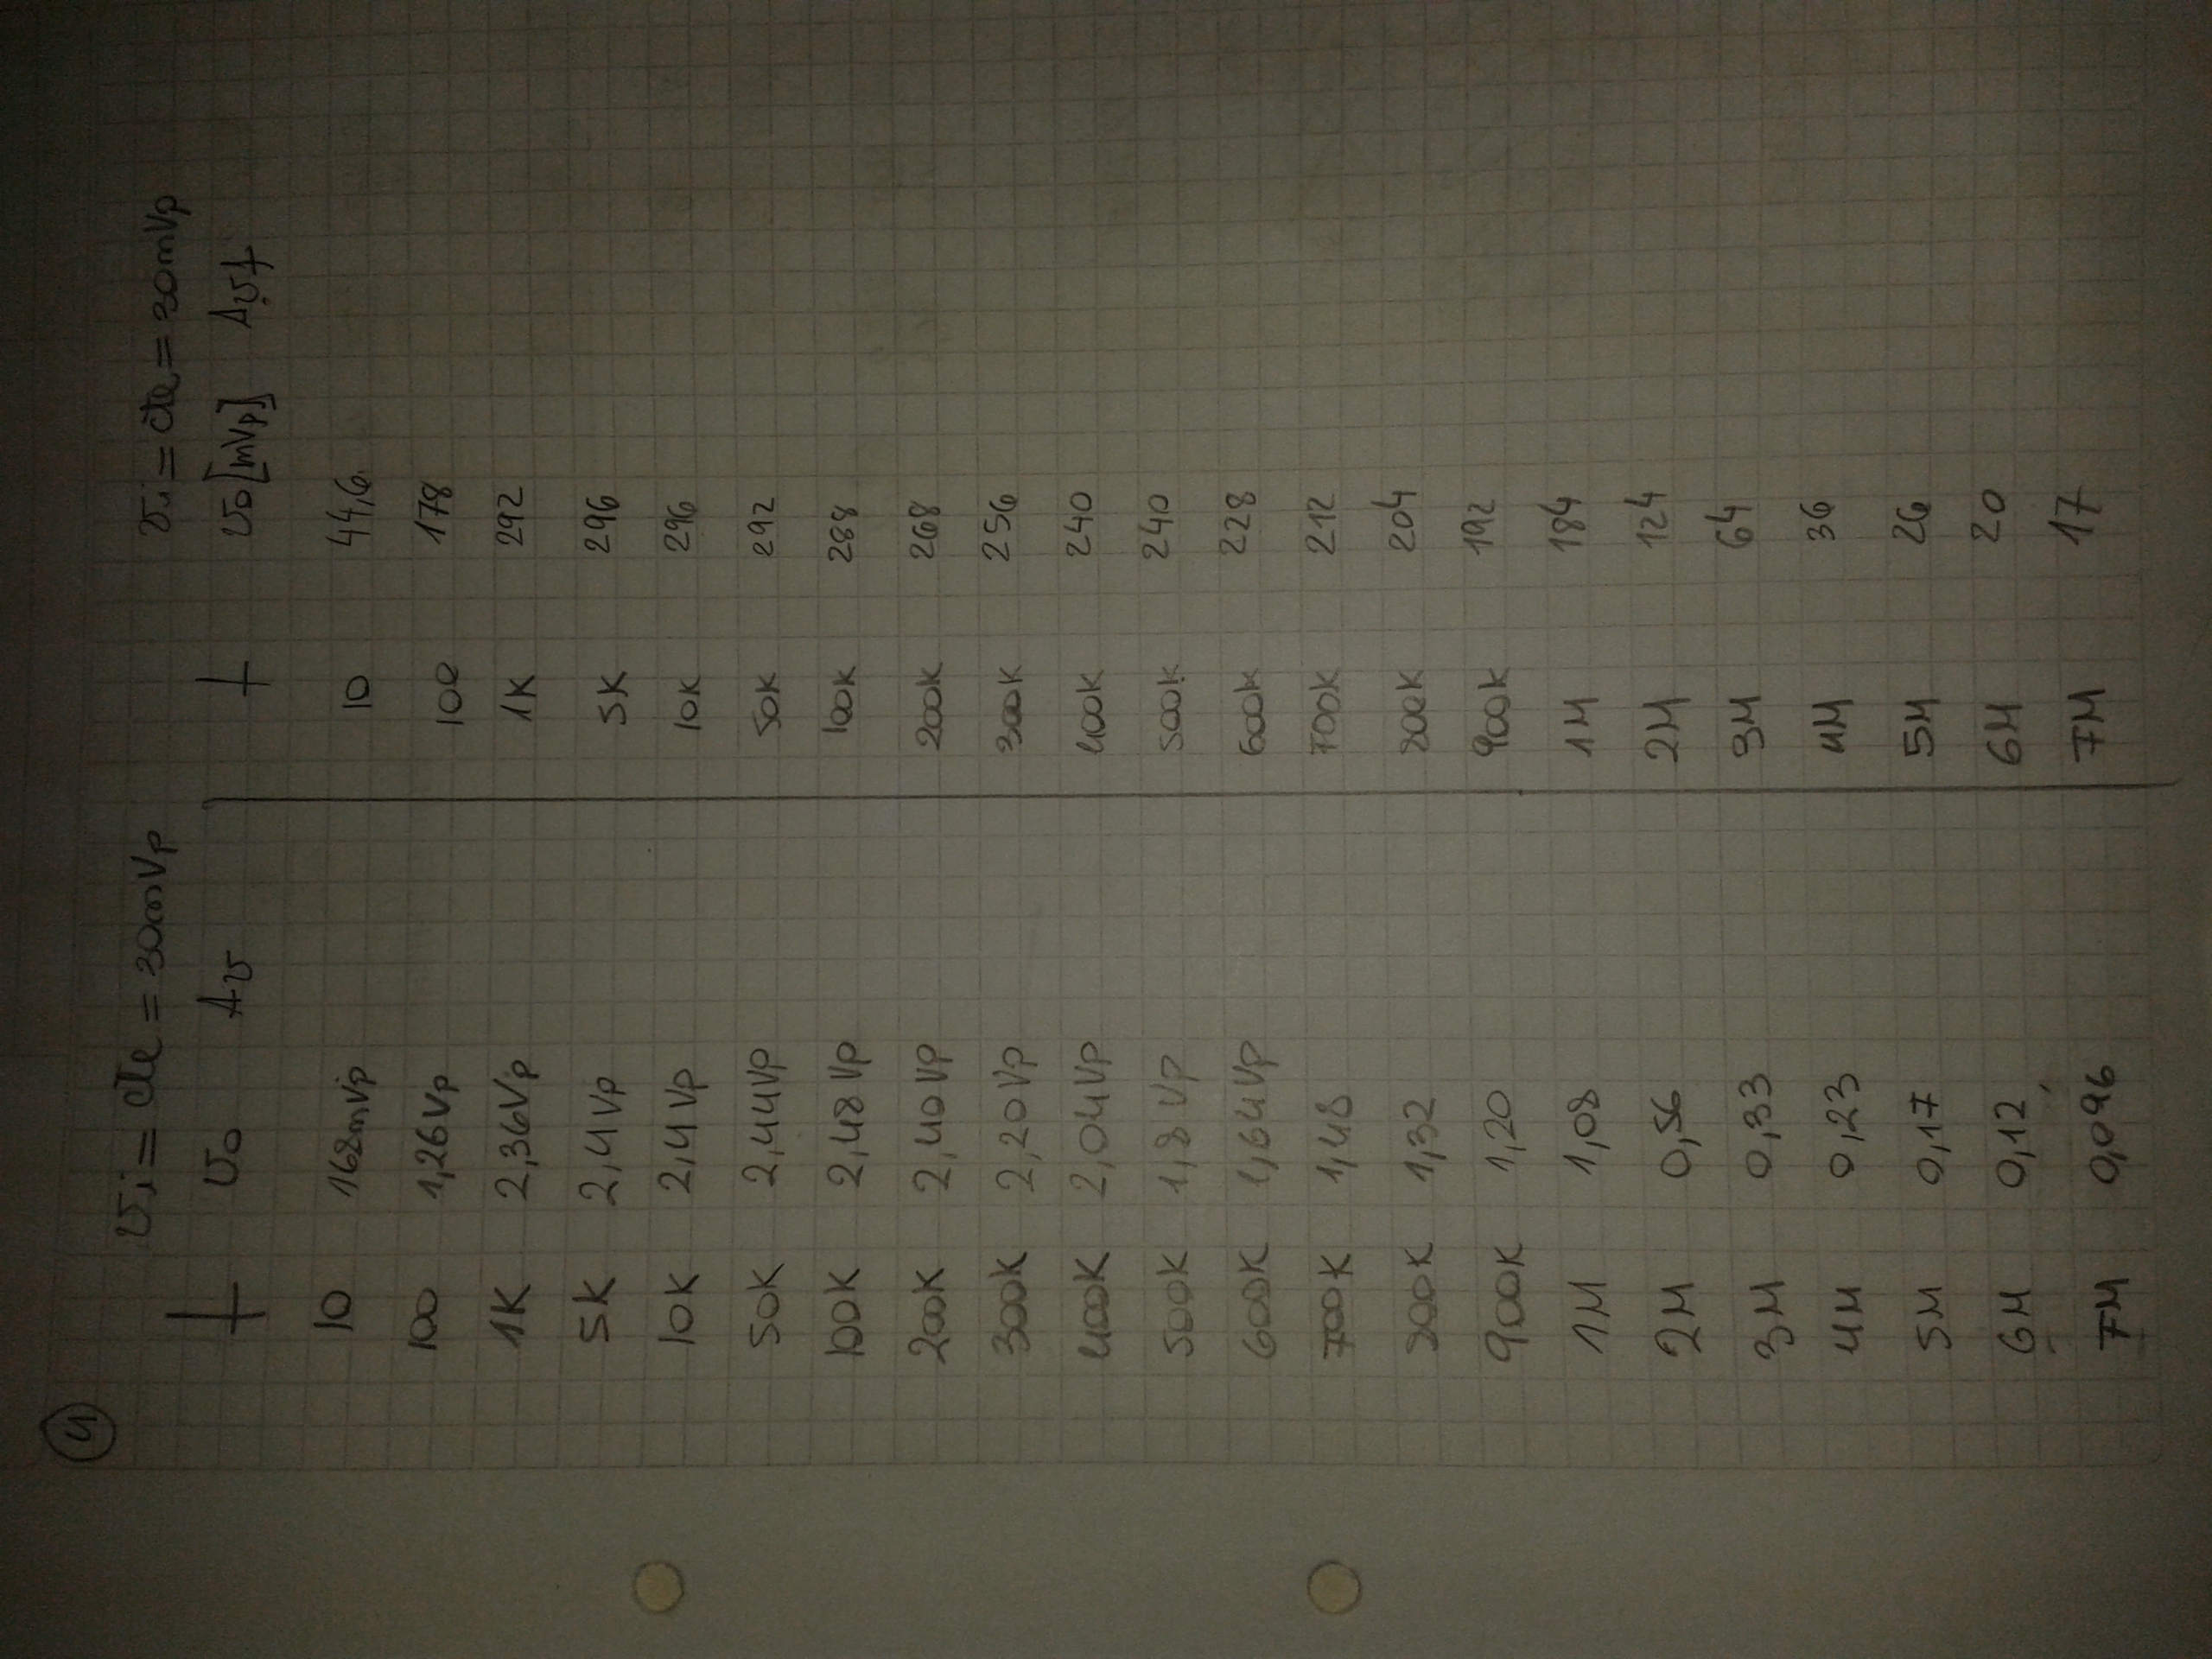 4
vi = cte = 30mVp
f vo Av
10 168mVp
100 1,26Vp
1K 2,36Vp
5K 2,4Vp
10K 2,4Vp
50K 2,44Vp
100K 2,48Vp
200K 2,40Vp
300K 2,20Vp
400K 2,04Vp
500K 1,8Vp
600K 1,64Vp
700K 1,48
800K 1,32
900K 1,20
1M 1,08
2M 0,56
3M 0,33
4M 0,23
5M 0,17
6M 0,12
7M 0,096
vi = cte = 30mVp
f vo[mVp] Avf
10 44,6
100 178
1K 292
5K 296
10K 296
50K 292
100K 288
200K 268
300K 256
400K 240
500K 240
600K 228
700K 212
800K 204
900K 192
1M 184
2M 124
3M 64
4M 36
5M 26
6M 20
7M 17